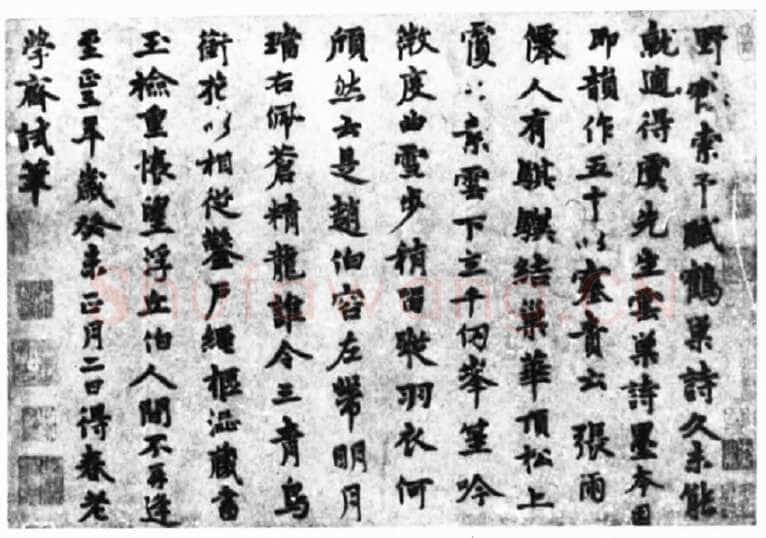 野索予賦鶴巢詩久未能
就適得虞先生雲巢詩墨本因
即韻作五十以塞責云 張雨
僊人有騏驥結巢華頂松上
雲下立千仞峯笙吟
微度曲雪步稍留蹤羽衣何
頎然云是趙伯容左帶明月
璫右佩蒼精龍諱令三青鳥
銜花以相從鑿戶繩樞藏書
玉檢重悵望浮丘伯人間不再逢
至正三年歲癸未正月二日得春老
學齋試筆
Shufawang.cn